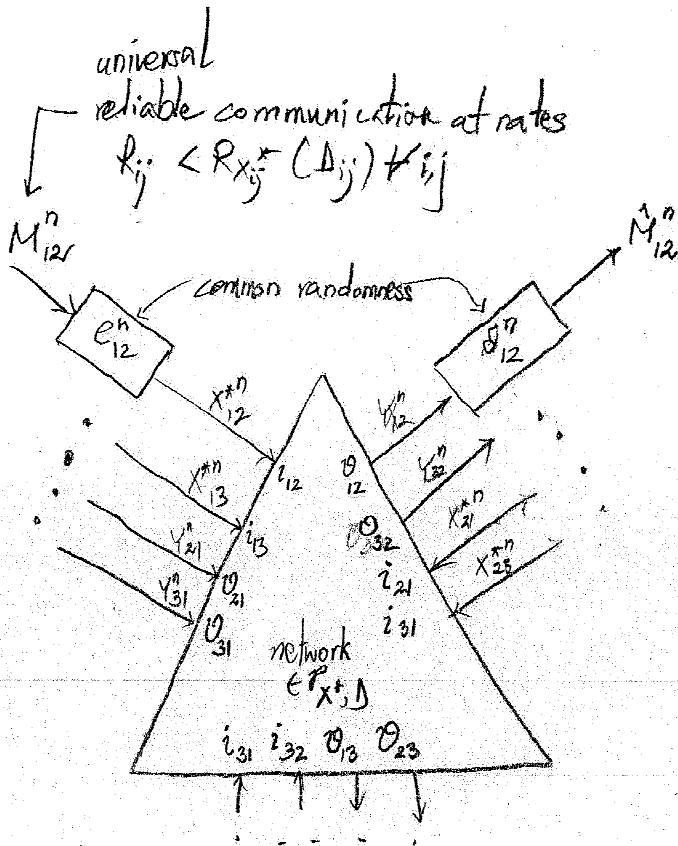 universal
reliable communication at rates
R_ij < R_{X*_ij} (Δ_ij) ∀ i,j
M^n_12
M̂^n_12
common randomness
e^n_12
d^n_12
X*^n_12
Y^n_12
X*^n_13
Y^n_32
i_12
ϑ_12
Y^n_21
X*^n_21
i_13
ϑ_32
Y^n_31
X*^n_23
ϑ_21
i_21
ϑ_31
i_31
network
∈ P_{X*,Δ}
i_31 i_32 ϑ_13 ϑ_23